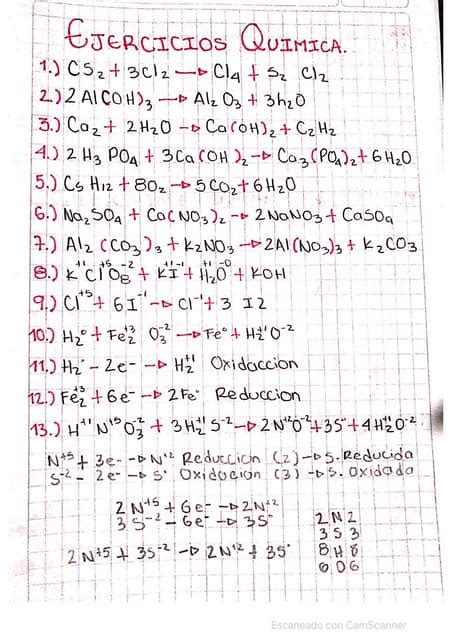 EJERCICIOS QUIMICA.
1.) CS2 + 3Cl2 → Cl4 + S2 Cl2
2.) 2 Al(OH)3 → Al2 O3 + 3h2O
3.) Ca2 + 2H2O → Ca(OH)2 + C2H2
4.) 2 H3 PO4 + 3Ca(OH)2 → Ca3(PO4)2 + 6H2O
5.) C5 H12 + 8O2 → 5CO2 + 6H2O
6.) Na2SO4 + Ca(NO3)2 → 2NaNO3 + CaSO4
7.) Al2 (CO3)3 + K2NO3 → 2Al(NO3)3 + K2CO3
8.) K+1Cl+5O3-2 + K+1I-1 + H2+1O-0 + KOH
9.) Cl+5 + 6I-1 → Cl-1 + 3 I2
10.) H2° + Fe2+3 O3-2 → Fe° + H2+1O-2
11.) H2° - 2e- → H2+1 Oxidaccion
12.) Fe2+3 + 6e- → 2Fe° Reduccion
13.) H+1N+5O3-2 + 3H2+1S-2 → 2N+2O-2 + 3S° + 4H2+1O-2
N+5 + 3e- → N+2 Reduccion (2) → S. Reducida
S-2 - 2e- → S° Oxidacion (3) → S. Oxidada
2N+5 + 6e- → 2N+2
3S-2 - 6e- → 3S°
2N+5 + 3S-2 → 2N+2 + 3S°
2 N 2
3 S 3
8 H 8
6 O 6
Escaneado con CamScanner